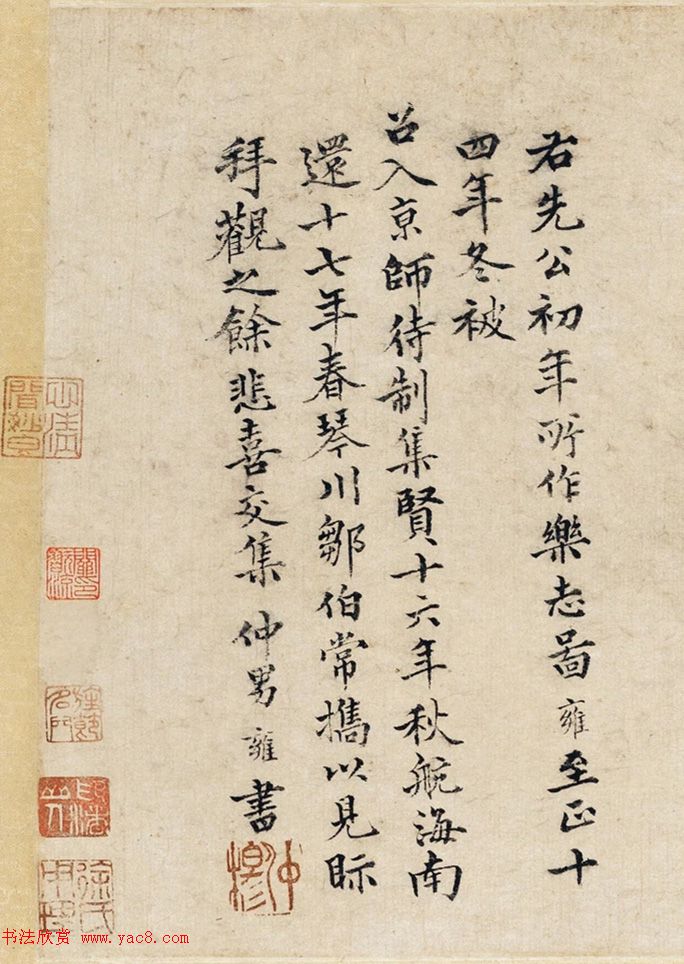 右先公初年所作樂志啚雍至正十
四年冬被
召入京師待制集賢十六年秋航海南
還十七年春琴川鄒伯常攜以見眎
拜觀之餘悲喜交集仲男雍書
仲穆
书法欣赏 www.yac8.com